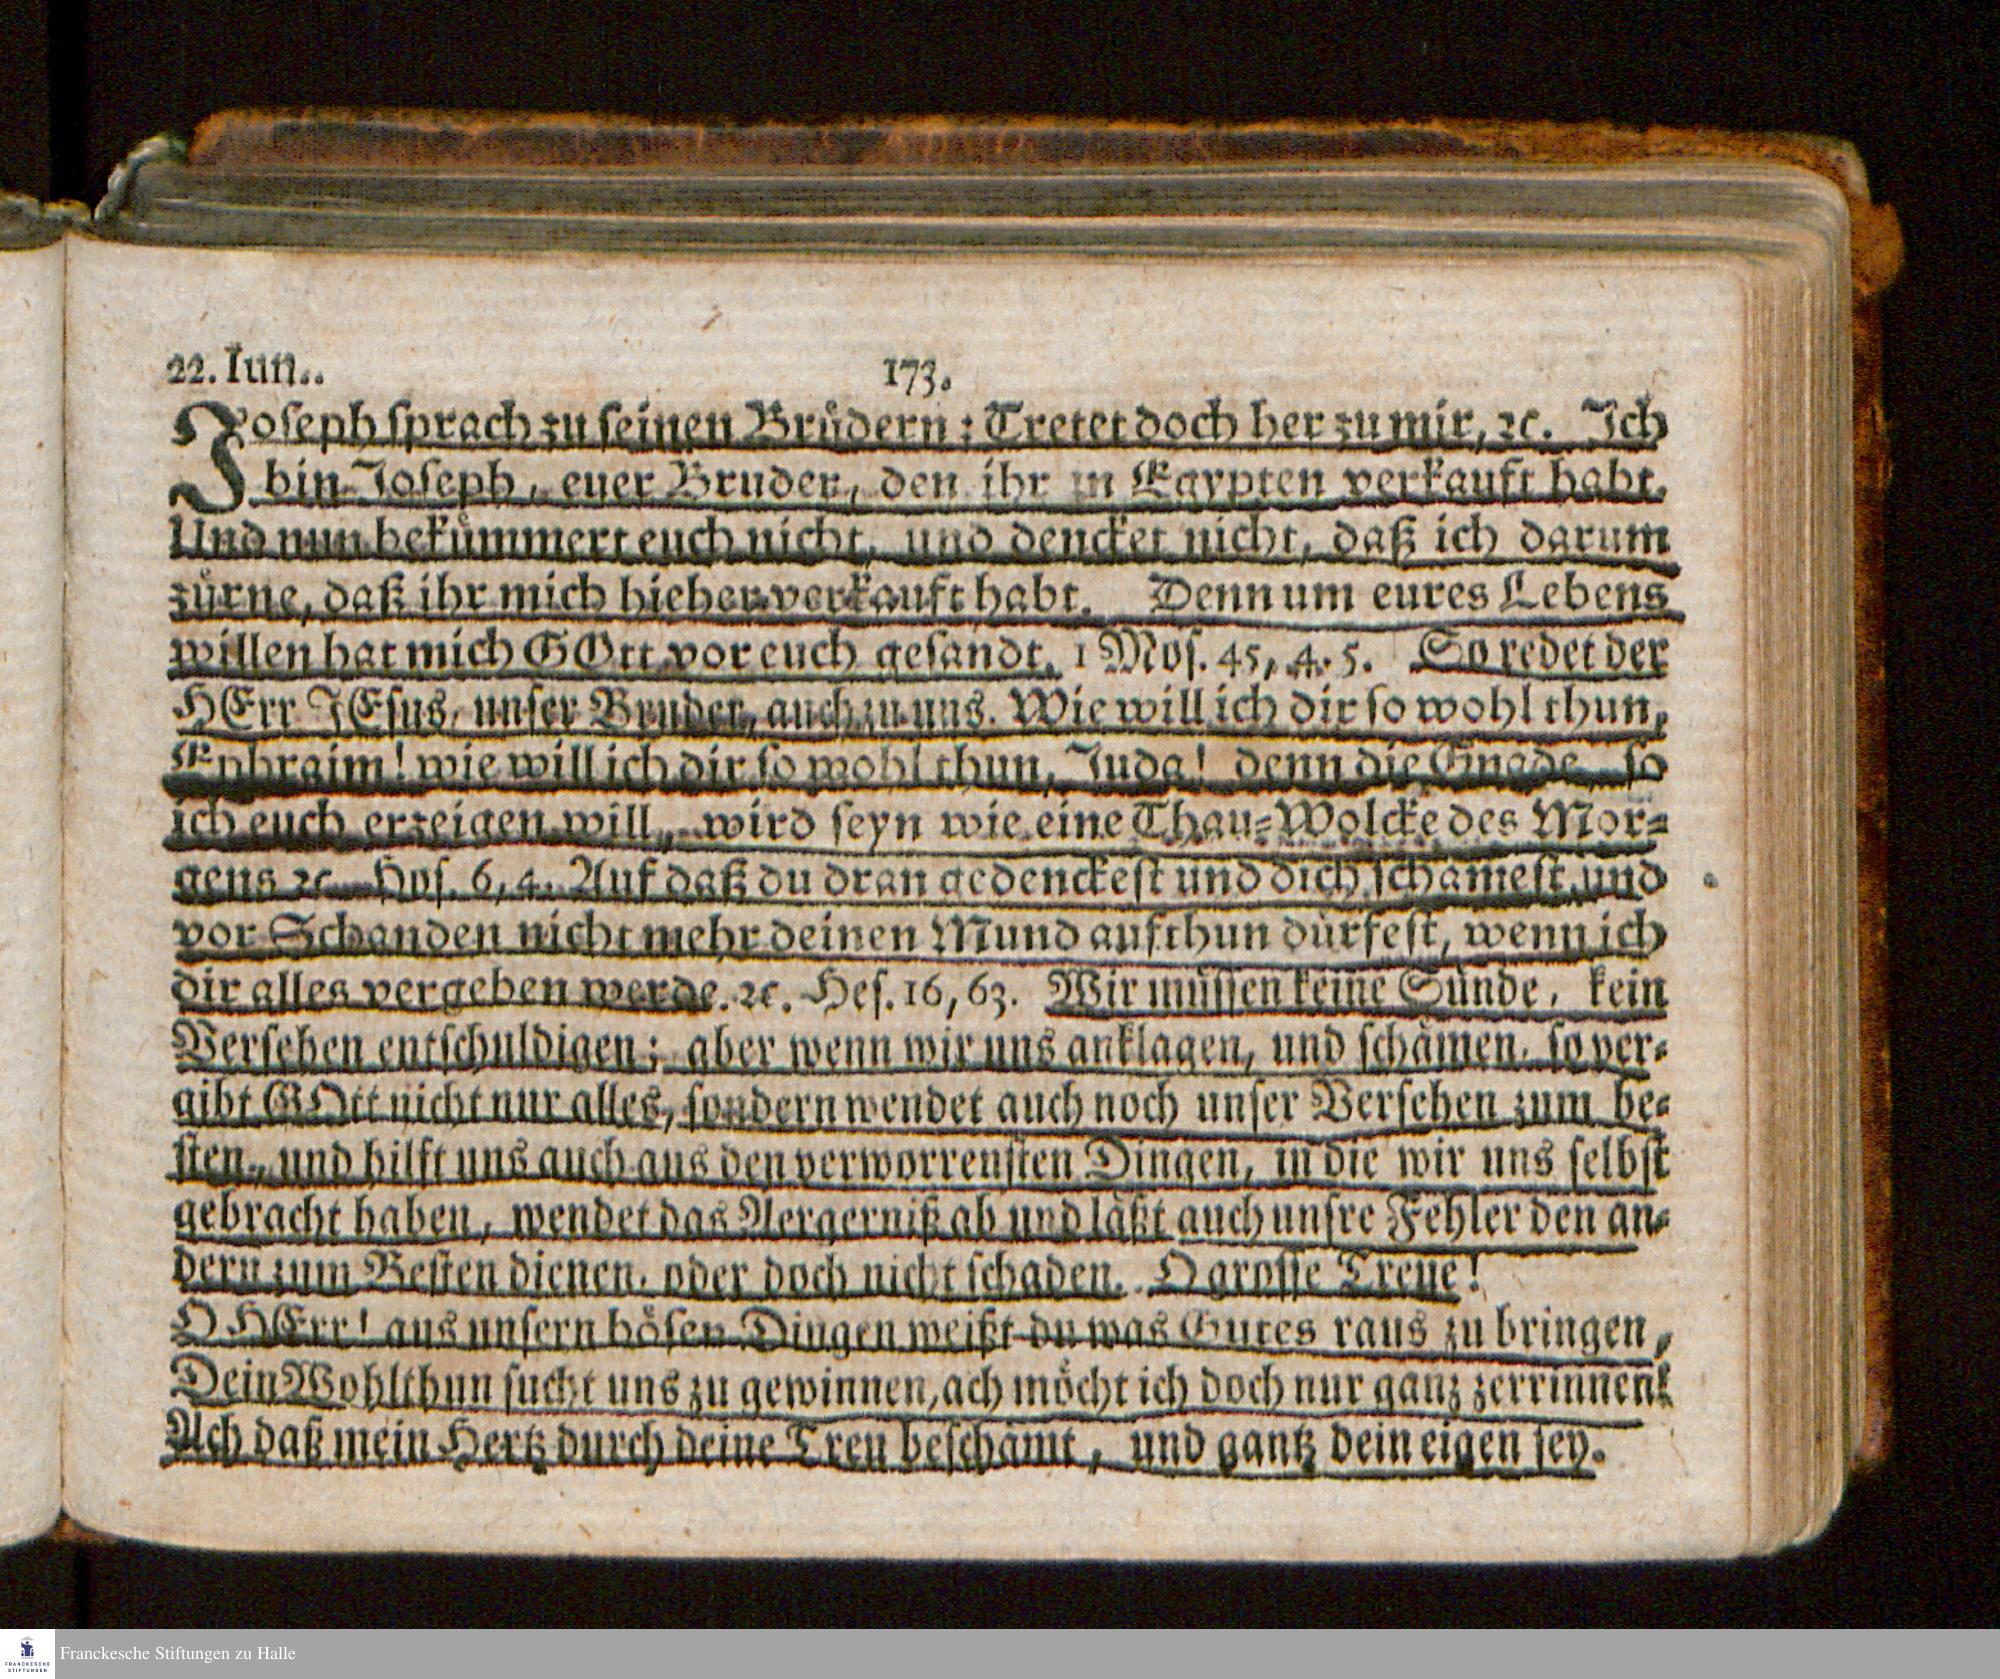 22. Iun..
173.
Joseph sprach zu seinen Brüdern: Tretet doch her zu mir, ꝛc. Ich
bin Joseph, euer Bruder, den ihr in Egypten verkauft habt.
Und nun bekümmert euch nicht, und dencket nicht, daß ich darum
zürne, daß ihr mich hieher verkauft habt. Denn um eures Lebens
willen hat mich GOtt vor euch gesandt. 1 Mos. 45, 4. 5. So redet der
HErr JEsus, unser Bruder, auch zu uns. Wie will ich dir so wohl thun,
Ephraim! wie will ich dir so wohl thun, Juda! denn die Gnade, so
ich euch erzeigen will, wird seyn wie eine Thau-Wolcke des Mor-
gens ꝛc. Hos. 6, 4. Auf daß du dran gedenckest und dich schämest, und
vor Schanden nicht mehr deinen Mund aufthun dürfest, wenn ich
dir alles vergeben werde. ꝛc. Hes. 16, 63. Wir müssen keine Sünde, kein
Versehen entschuldigen; aber wenn wir uns anklagen, und schämen, so ver-
gibt GOtt nicht nur alles, sondern wendet auch noch unser Versehen zum be-
sten, und hilft uns auch aus den verworrensten Dingen, in die wir uns selbst
gebracht haben, wendet das Aergerniß ab und läßt auch unsre Fehler den an-
dern zum Besten dienen, oder doch nicht schaden. O grosse Treue!
O HErr! aus unsern bösen Dingen weißt du was Gutes raus zu bringen,
Dein Wohlthun sucht uns zu gewinnen, ach möcht ich doch nur ganz zerrinnen!
Ach daß mein Hertz durch deine Treu beschämt, und gantz dein eigen sey.
FRANCKESCHE
STIFTUNGEN
Franckesche Stiftungen zu Halle